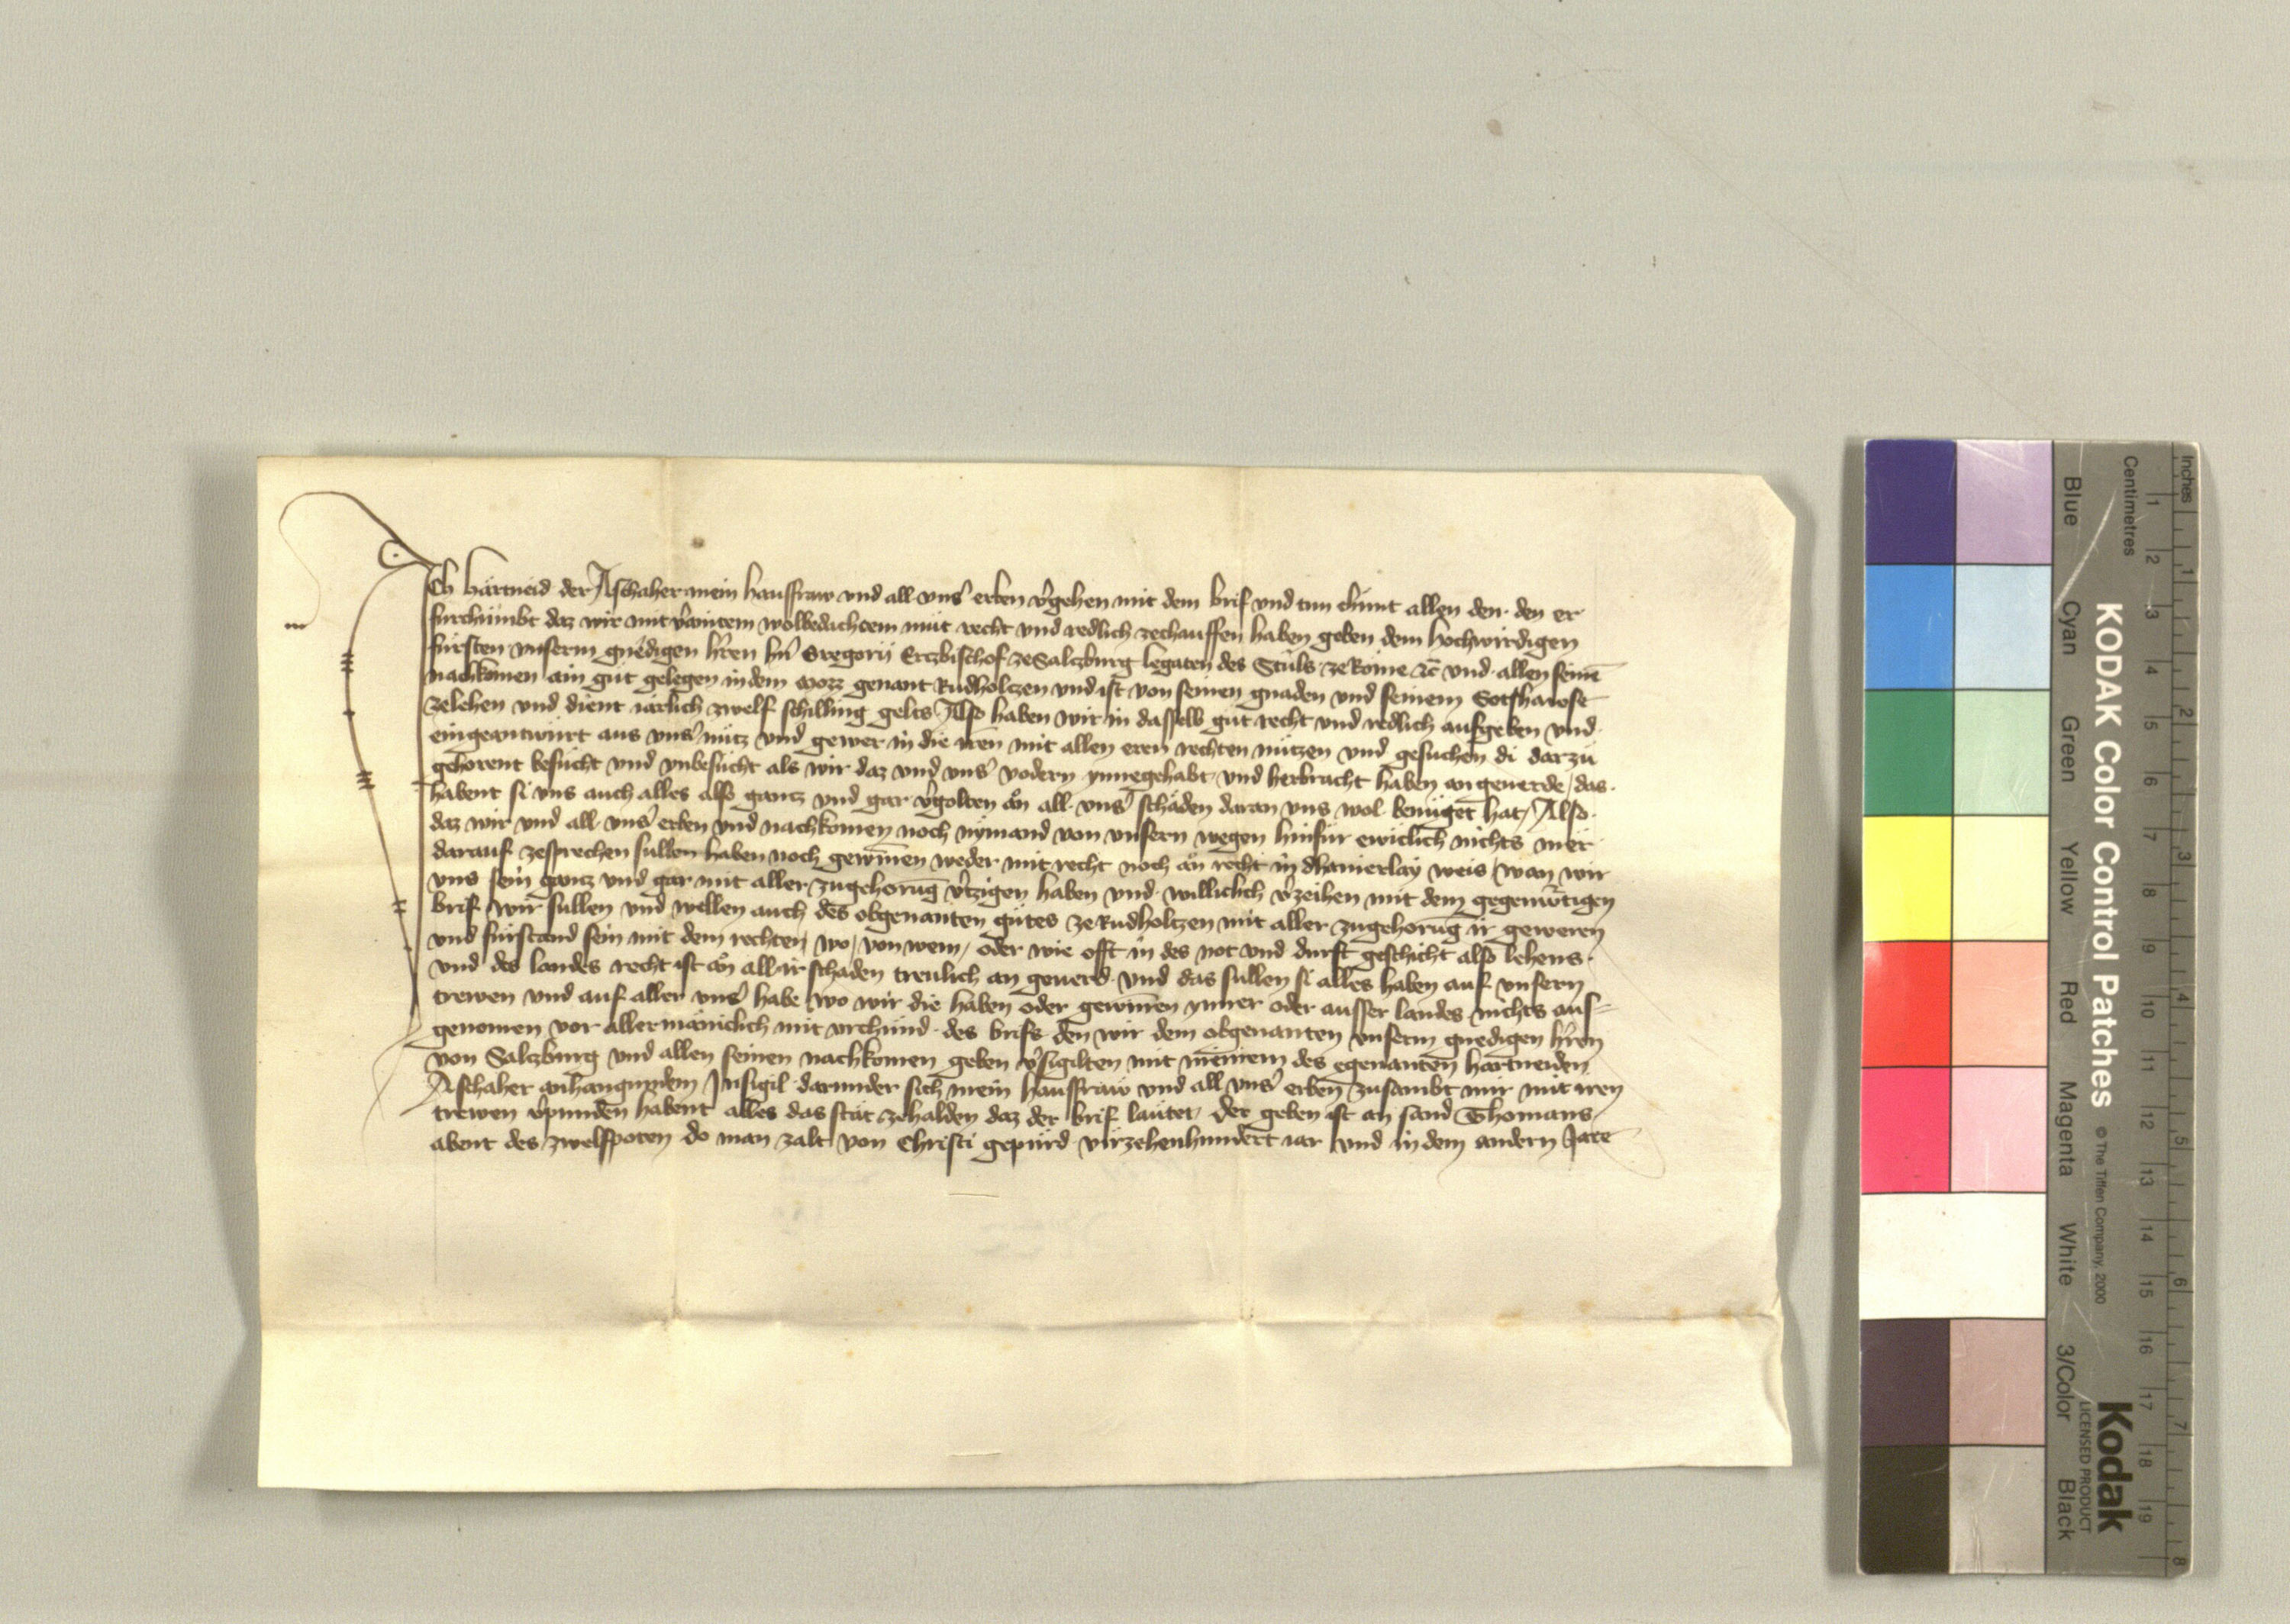 Ich Hårtneid der Aschaher mein hausfraw vnd all vnsˀ erben vˀgehen mit dem brif vnd tun chunt allen den den er
furchumbt daz wir mit vˀaintem wolbedachtem můt recht vnd redlich zechauffen haben geben dem hochwirdigen
fürsten vnserm gnedigen hˀren hˀn Gregorij Erczbischof ze Salczburg legaten des Stůls ze Rome ꝛc̄ vnd allen seinē
nachkomen ain gůt gelegen in dem mozz genant Rudholtzen vnd ist von seinen gnaden vnd seinem Gotshawse
zelehen vnd dient iarlich zwelf schilling gelts Also haben wir in dasselb gůt recht vnd redlich aufgeben vnd
eingeantwürt aus vnsˀ nütz vnd gewer in die iren mit allen eren rechten nützen vnd gesuchen di darzů
gehorent besůcht vnd vnbesůcht als wir daz vnd vnsˀ vodern ynnegehabt vnd herbracht haben angeuerde / das
habent si vns auch alles also gancz vnd gar vˀgolten ån all vnsˀ schåden daran vns wol benüget hat / Also
daz wir vnd all vnsˀ erben vnd nachkomen noch nymand von vnsern wegen hinfür ewiclich nichts mer
darauf zesprechen sullen haben noch gewiñen weder mit recht noch ån recht in dhainerlay weis / wan wir
vns sein gancz vnd gar mit aller zugehorūg vˀtzigen haben vnd willichlich vˀzeihen mit dem gegenwˀtigen
brif wir sullen vnd wellen auch des obgenanten gůtes ze Rudholtzen mit aller zugehorūg ir geweren
vnd fürstand sein mit dem rechten / wo / von wem / oder wie offt in des not vnd durft geschicht als lehens
vnd des landes recht ist ån all ir schaden treulich an geuerd vnd das sullen si alles haben auf vnsern
trewen vnd auf aller vnsˀ habe wo wir die haben oder gewiñen ynner oder ausser landes nichts aus=
genomen vor allermåniclich mit vrchund des brifs den wir dem obgenanten vnserm gnedigen hˀren
von Salczburg vnd allen seinen nachkomen geben vˀsigilten mit meinem des egenanten Hartneiden
Aschaher anhangundem Insigil darunder sich mein hausfraw vnd all vnsˀ erben zusambt mir mit iren
trewen vˀpunden habent alles das ståt zehalden daz der brif lautet / Der geben ist an sand Thomans
abent des zwelfpoten do man zalt von Christi gepurd virzehenhundert iar vnd in dem andern Jare
KODAK Color Control Patches
© The Tiffen Company, 2000
Kodak
LICENSED PRODUCT
Inches
Centimetres
1 2 3 4 5 6 7 8
1 2 3 4 5 6 7 8 9 10 11 12 13 14 15 16 17 18 19
Blue
Cyan
Green
Yellow
Red
Magenta
White
3/Color
Black